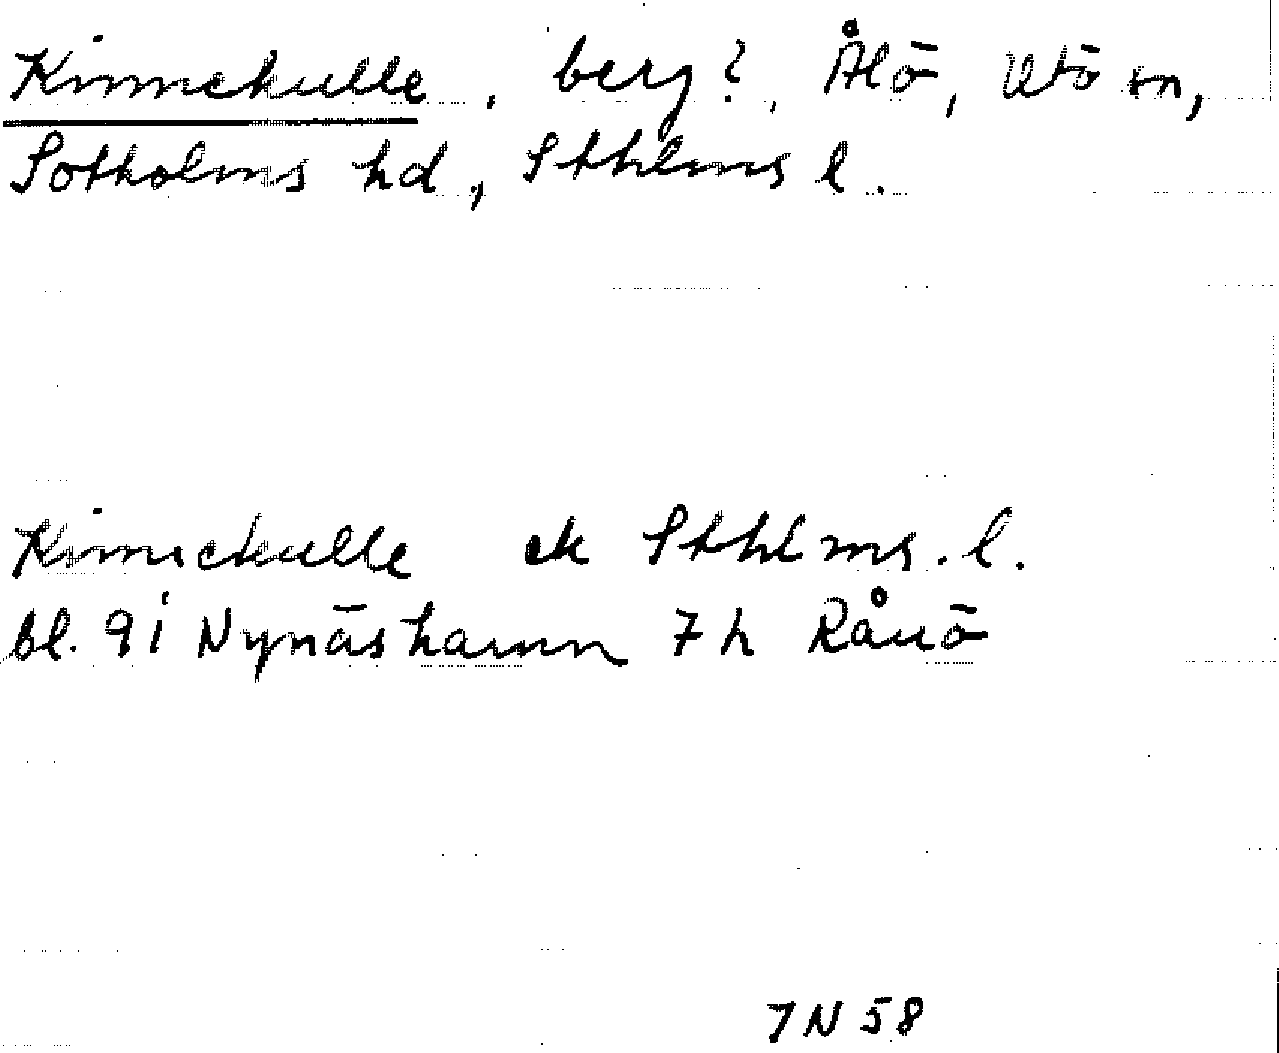 Kinnekulle, berg?, Ålö, Utö sn,
Sotholms hd, Sthlms l.
Kinnekulle ek Sthlms. l.
bl. 9i Nynäshamn 7h Rånö
7 N 58